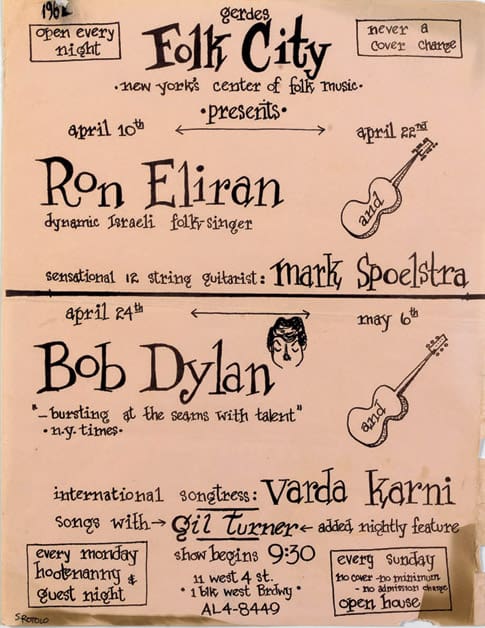 1962
open every
night
gerdes
Folk City
never a
cover charge
·new york's center of folk music·
·presents·
april 10th
april 22nd
Ron Eliran
and
dynamic Israeli folk-singer
sensational 12 string guitarist: Mark Spoelstra
april 24th
may 6th
Bob Dylan
"—bursting at the seams with talent"
·n.y. times·
and
international songtress: Varda Karni
songs with→ Gil Turner ← added nightly feature
every monday
hootenanny &
guest night
show begins 9:30
11 west 4 st.
·1 blk west Brdwy·
AL4-8449
every sunday
no cover-no minimum
-no admission charge
open house
S.ROTOLO